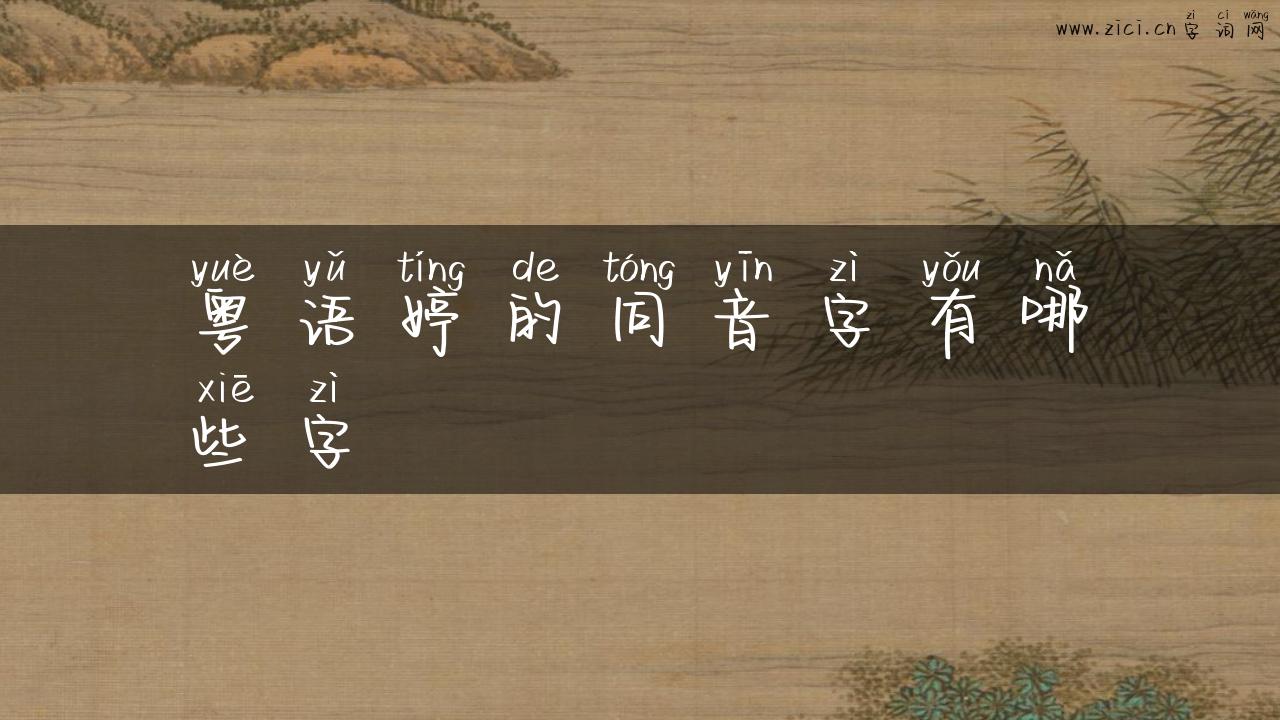 zì cí wǎng
www.zici.cn字词网
yuè yǔ tíng de tóng yīn zì yǒu nǎ
粤语婷的同音字有哪
xiē zì
些字